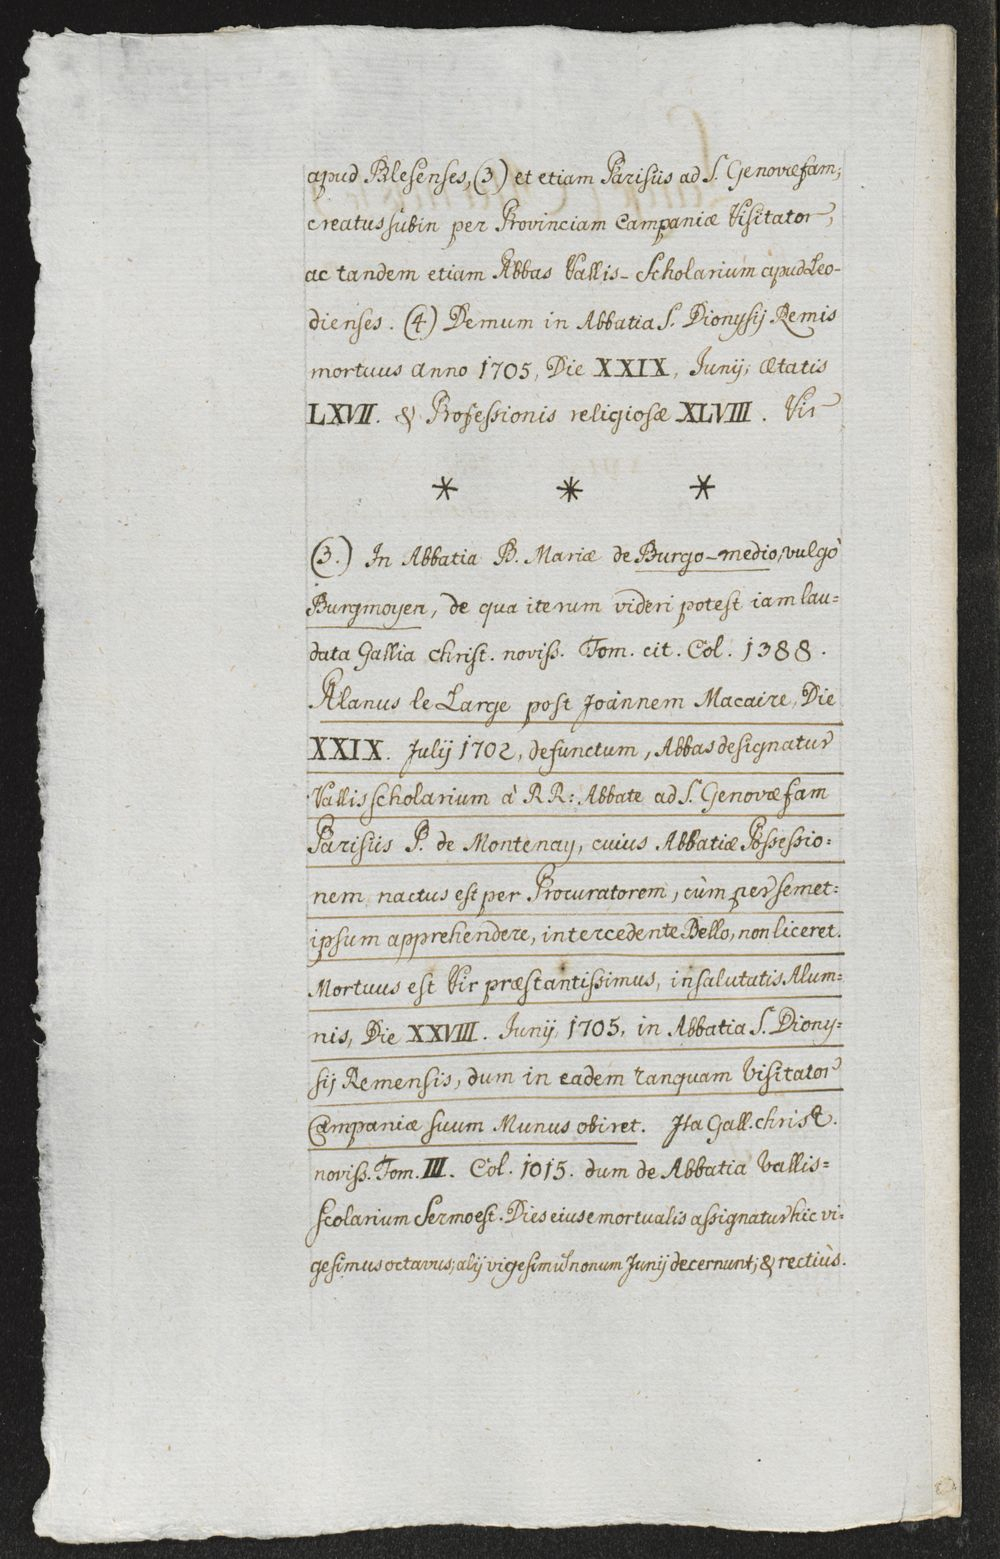 apud Blesenses, (3) et etiam Parisiis ad S. Genovefam;
creatus subin per Provinciam Campaniæ Visitator,
ac tandem etiam Abbas Vallis-Scholarium apud Leo-
dienses. (4) Demum in Abbatia S. Dionysij Remis
mortuus anno 1705, Die XXIX, Junij, ætatis
LXVII. & Professionis religiosæ XLVIII. Vir
* * *
(3.) In Abbatia B. Mariæ de Burgo-medio, vulgò
Burgmoyen, de qua iterum videri potest iam lau=
data Gallia christ. noviss. Tom. cit. Col. 1388.
Alanus le Large post Joannem Macaire, Die
XXIX. Julij 1702, defunctum, Abbas designatur
Vallisscholarium à RR: Abbate ad S. Genovæfam
Parisiis P. de Montenay, cuius Abbatiæ Possessio=
nem nactus est per Procuratorem, cùm per semet=
ipsum apprehendere, intercedente Bello, non liceret.
Mortuus est Vir præstantissimus, insalutatis Alum=
nis, Die XXVIII. Junij, 1705, in Abbatia S. Diony=
sij Remensis, dum in eadem tanquam Visitator
Campaniæ suum Munus obiret. Ita Gall. christ.
noviss. Tom. III. Col. 1015. dum de Abbatia Vallis=
scolarium Sermo est. Dies eius emortualis assignatur hic vi=
gesimus octavus; alij vigesimũ nonum Junij decernunt; & rectiùs.